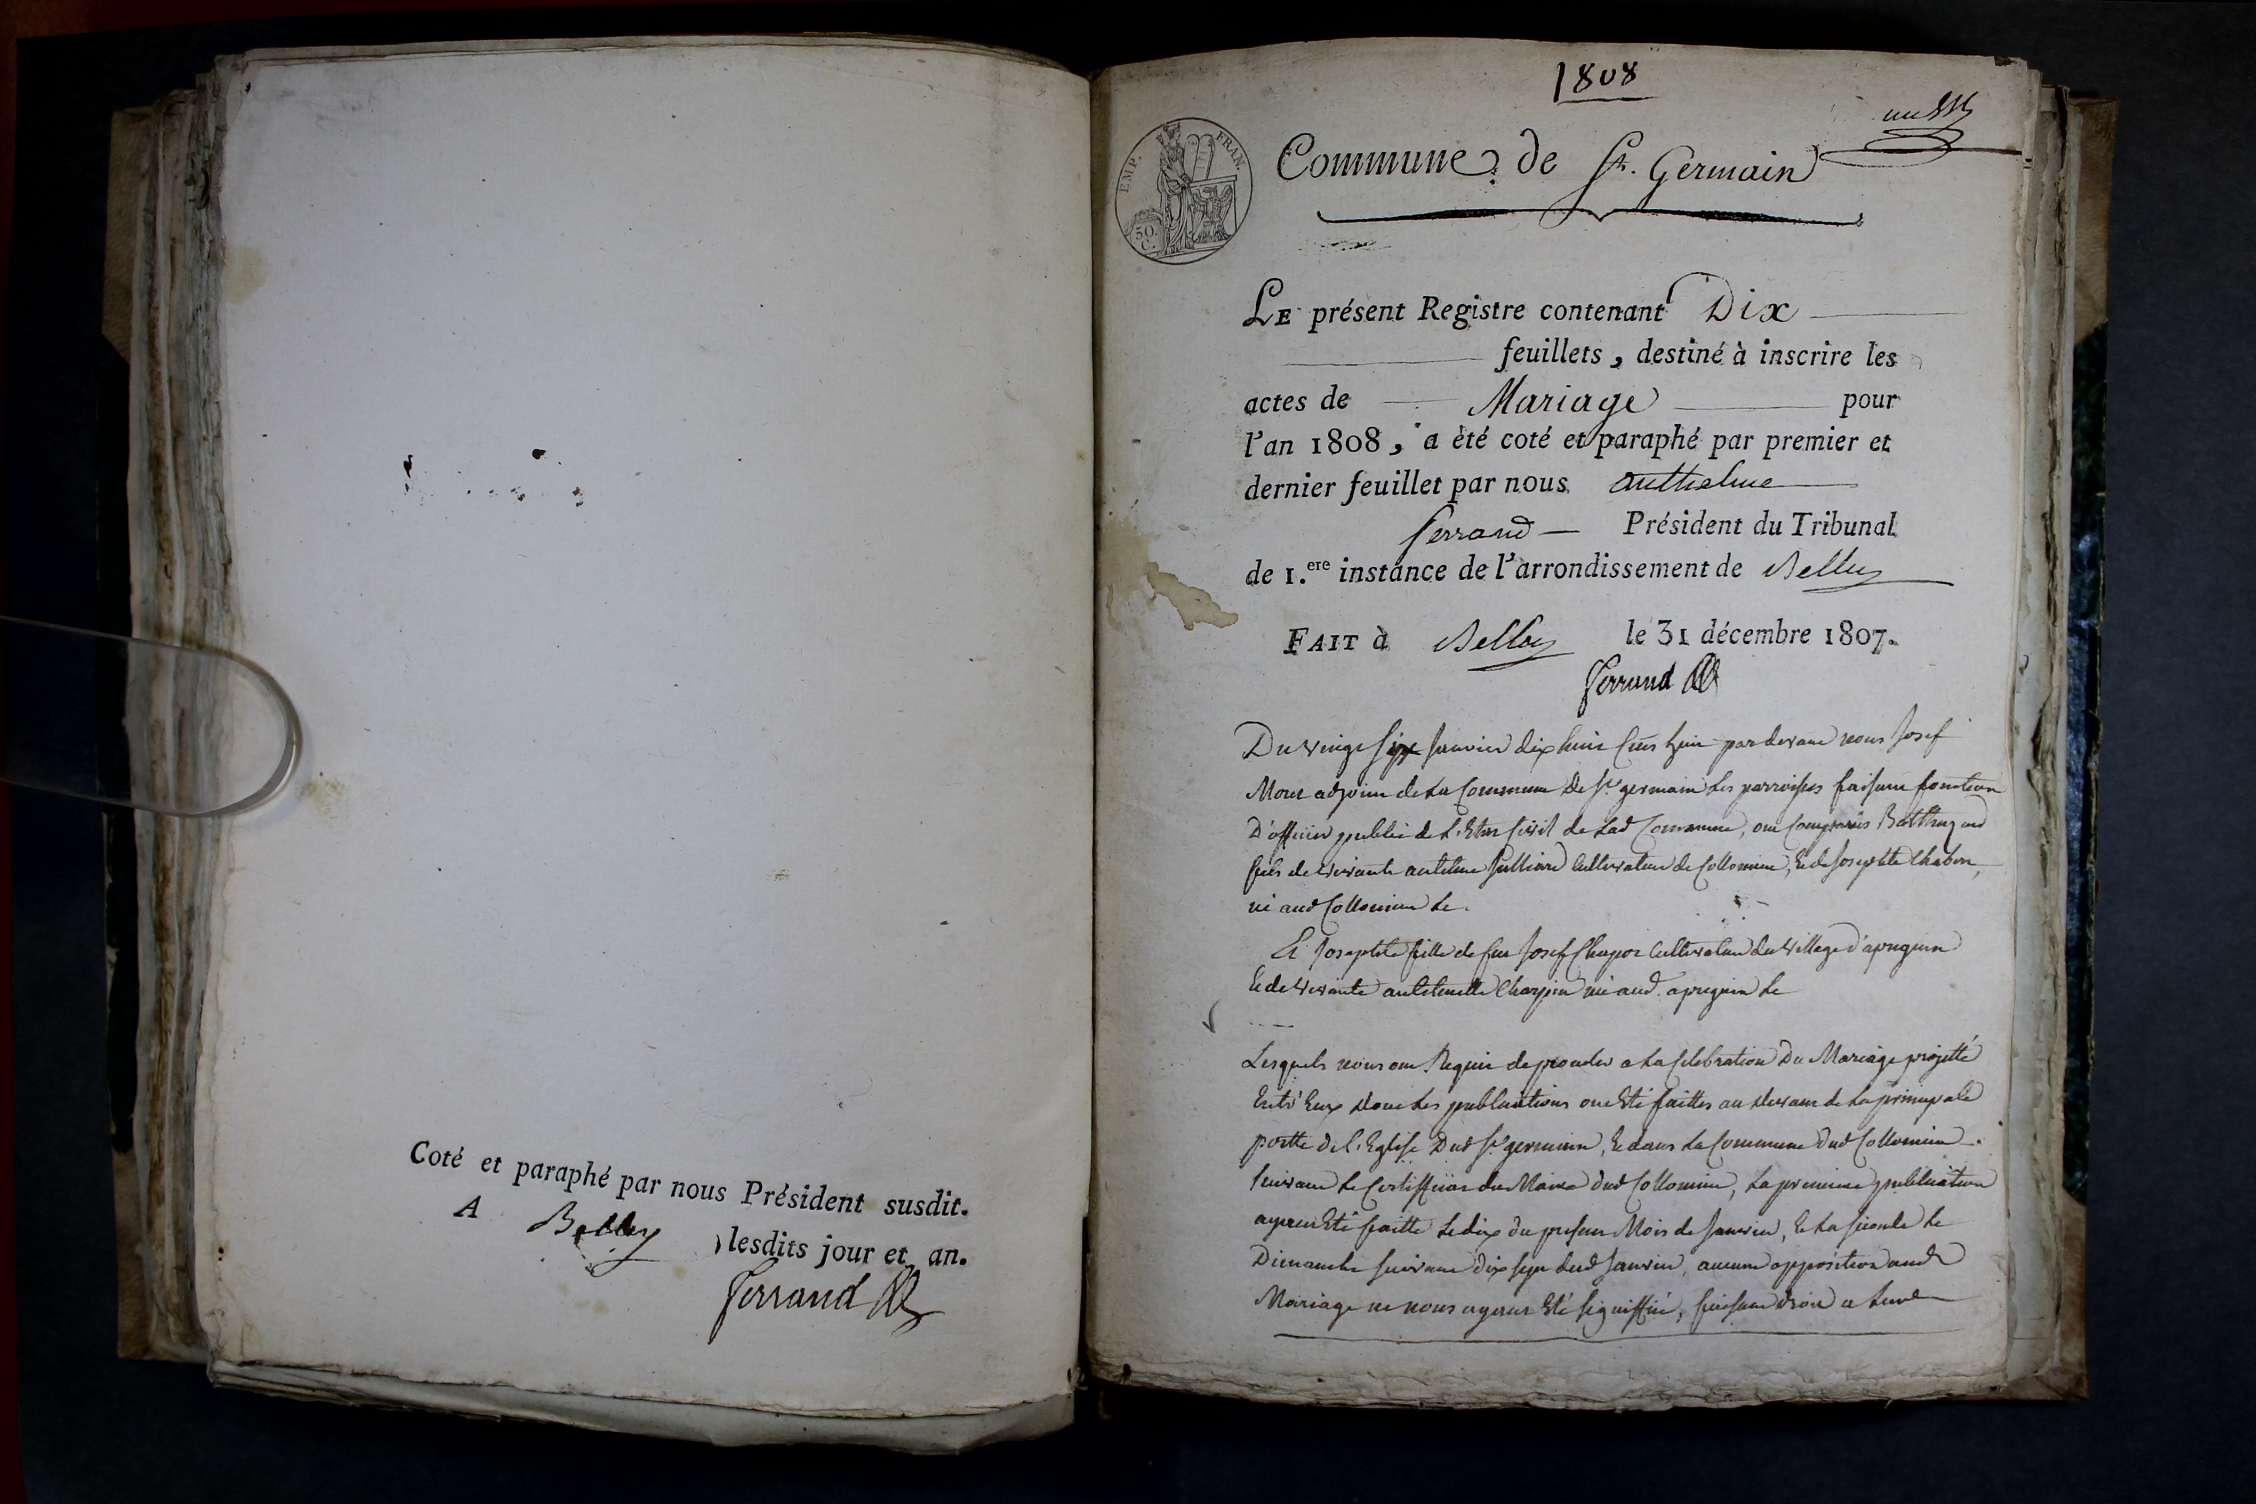 Coté et paraphé par nous Président susdit.
A Belley lesdits jour et an.
Ferrand
1808
un
EMP. FRAN.
50.
C.
Commune de St. Germain
LE présent Registre contenant Dix
feuillets, destiné à inscrire les
actes de Mariage pour
l'an 1808, a été coté et paraphé par premier et
dernier feuillet par nous anthelme
ferrand Président du Tribunal
de 1.ere instance de l'arrondissement de Belley
FAIT à Belley le 31 décembre 1807.
Ferrand
Du vingt six Janvier dix huit Cens huit par devant nous Josef
adjoint de La Commune de St. germain Les parroisses faisant fonction
D'officier public de L'Etat Civil de Lad Commune, ont Comparus
fils de vivants antelme Julliard Cultivateur de Collomieu, & de Josephte Chabon,
né aud Collomieu Le
Et Josephte fille de feu Josef Cultivateur du village d'apregnin
& de vivante antelmette Charpin née aud. apregnin Le
Lesquels nous ont Requis de proceder a La Celebration Du Mariage projetté
Entr'Eux dont Les publications ont Eté faittes au devant de La principale
portte de L'Eglise Dud St germain, & dans La Commune dud Collomieu
suivant Le Certifficat du Maire dud Collomieu, La premiere publication
ayant Eté faitte Le dix du present Mois de Janvier, & La seconde Le
Dimanche suivant dix sept dud Janvier, aucune opposition aud
Mariage ne nous ayant Eté signiffiée, faisant droit a Leur